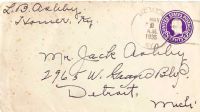 L. B. Ashby
Homer, Ky.
MAY
2
1936
Mr. Jack Ashby
2965 W. Grand Blvd,
Detroit,
Mich.